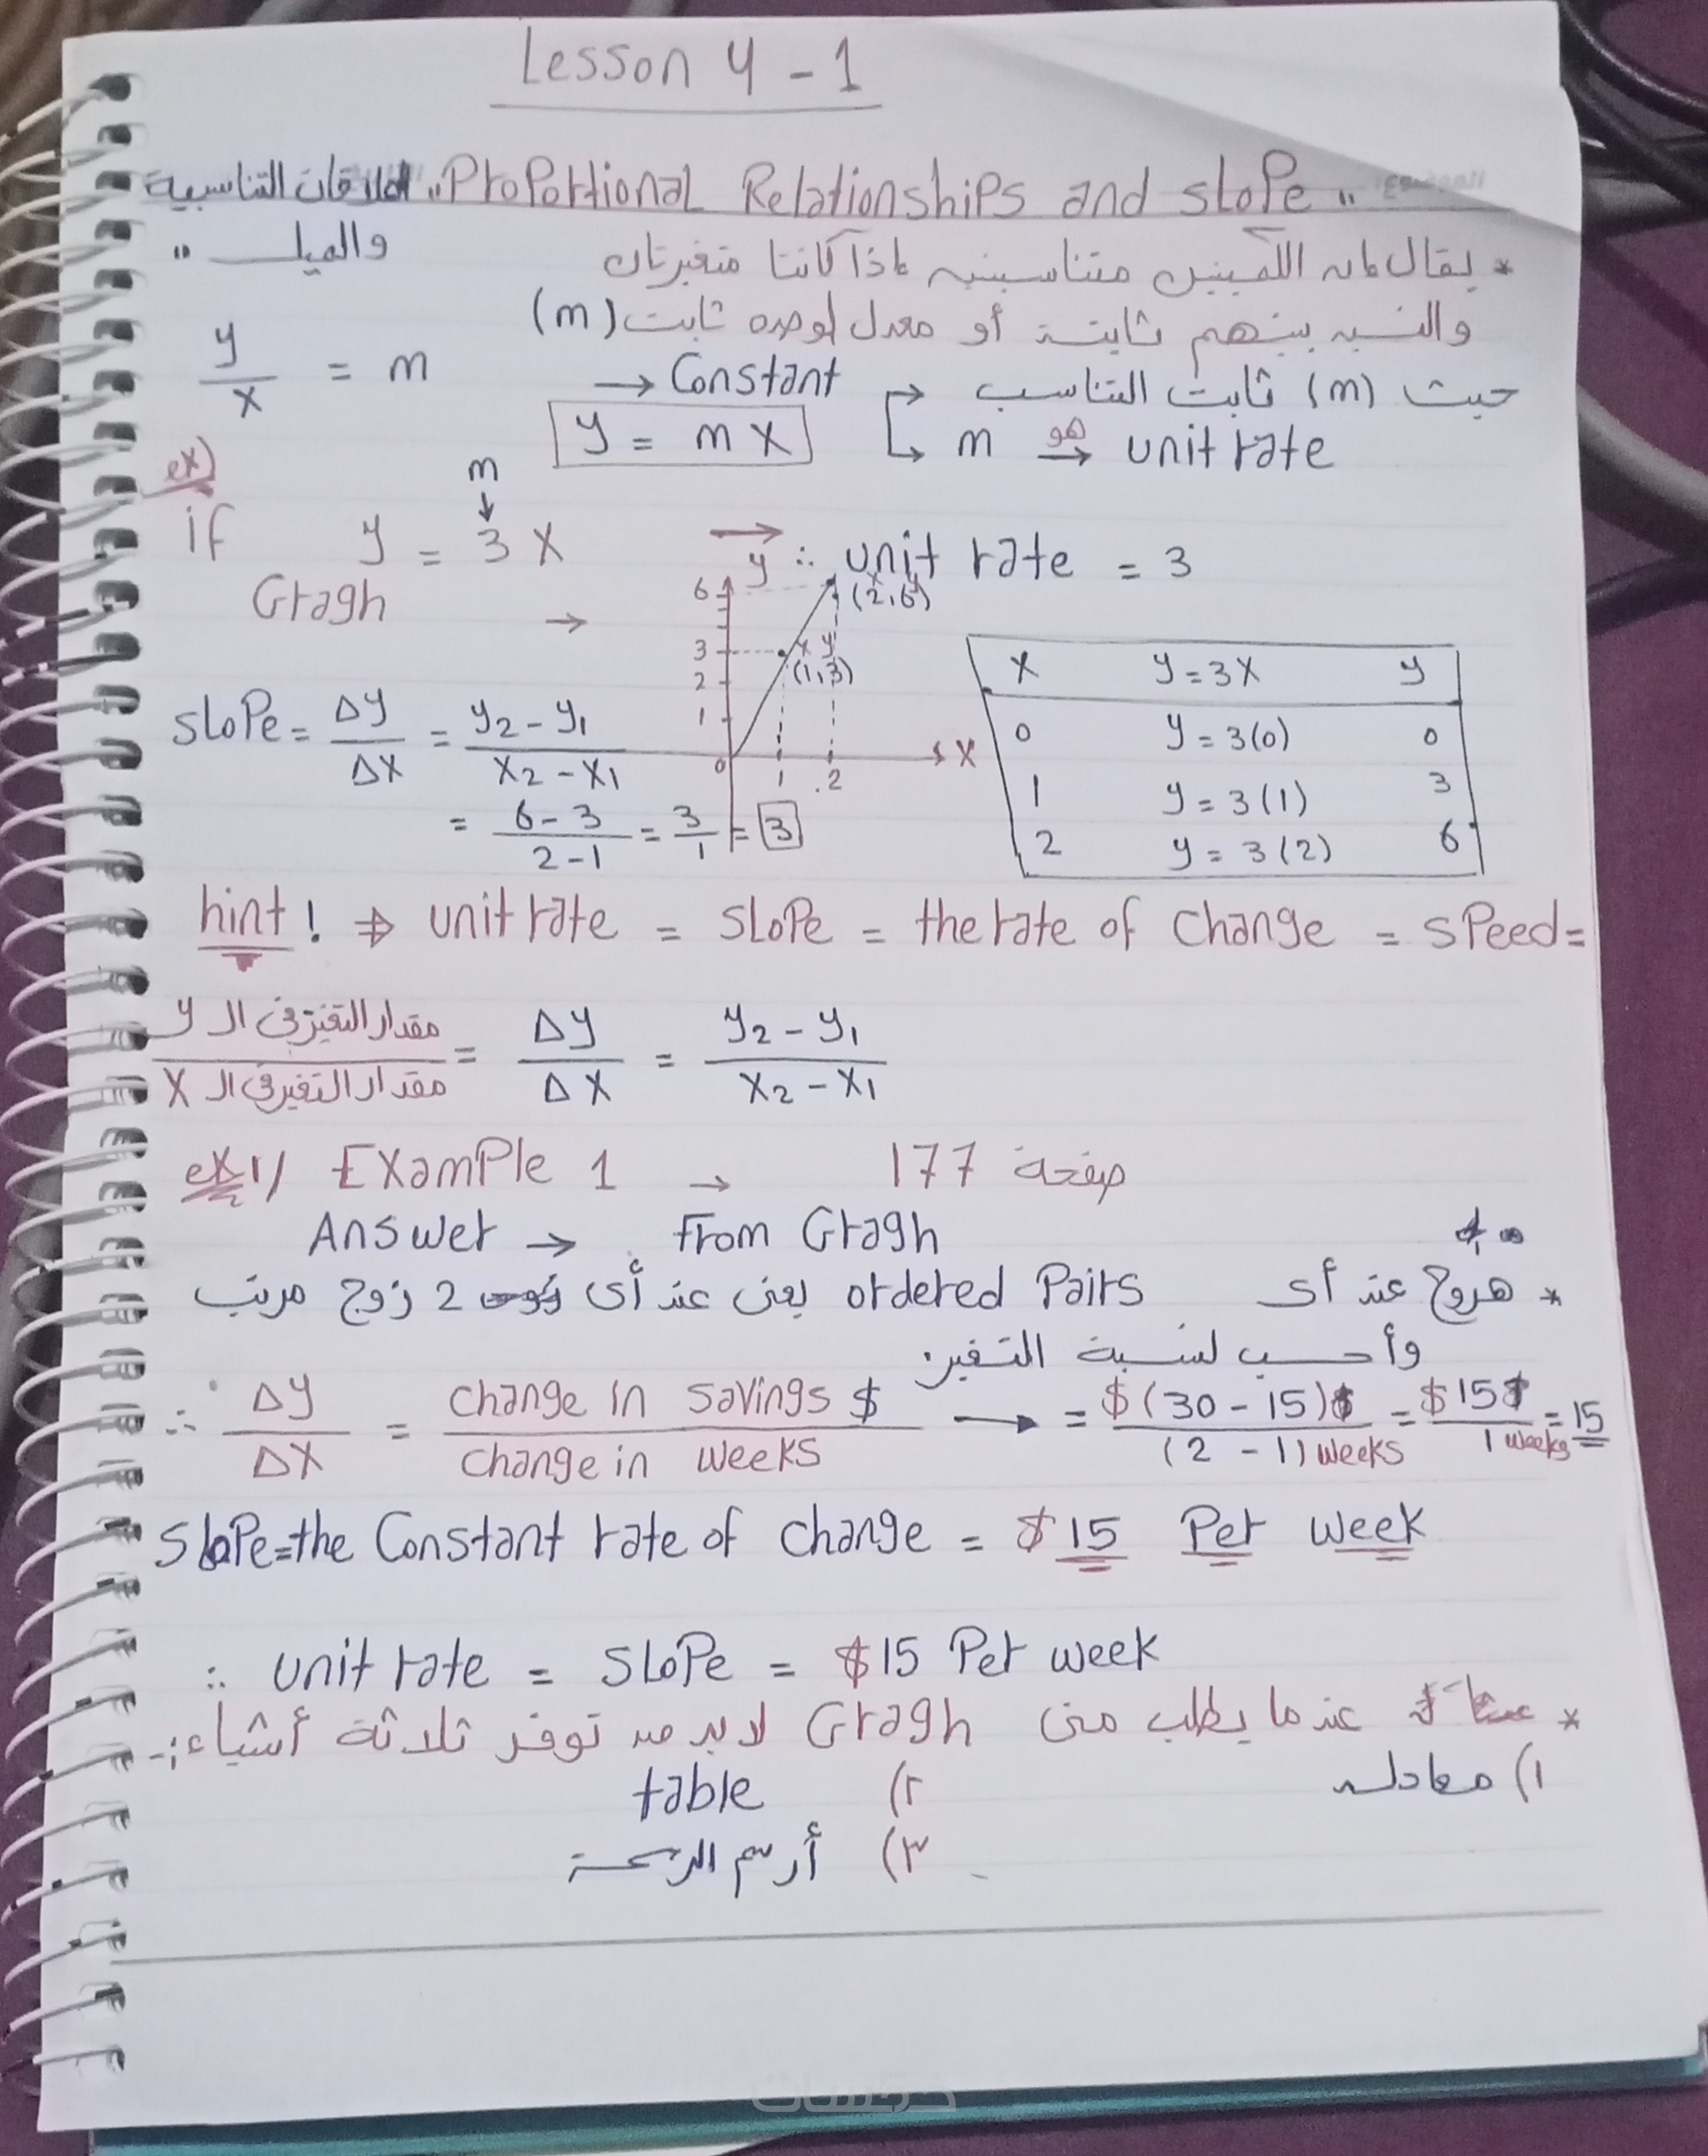 Lesson 4-1
"Proportional Relationships and slope" العلاقات التناسبية
والميل "
* يقال بأن الكميتين متناسبتين إذا كانتا متغيرتان
والنسبه بينهم ثابتة أو معدل لوحده ثابت (m)
y/x = m → Constant حيث (m) ثابت التناسب
y = mx m هو → unit rate
ex)
m
↓
if y = 3x → ∴ unit rate = 3
Gragh →
y
6
3
2
1
0
1
2
x
x y
(2,6)
x y
(1,3)
x y=3x y
0 y=3(0) 0
1 y=3(1) 3
2 y=3(2) 6
slope = Δy/Δx = (y2-y1)/(x2-x1)
= (6-3)/(2-1) = 3/1 = 3
hint! ⇒ unit rate = slope = the rate of change = speed =
مقدار التغير في الـ y / مقدار التغير في الـ x = Δy/Δx = (y2-y1)/(x2-x1)
ex1/ Example 1 → صفحة 177
Answer → From Gragh
* هروح عند أى ordered Pairs يعنى عند أى 2 زوج مرتب
وأحسب نسبة التغير.
∴ Δy/Δx = change in savings $ / change in weeks → = $(30-15)$ / (2-1) weeks = $15$ / 1 weeks = 15
Slope=the Constant rate of change = $15 Per week
∴ unit rate = slope = $15 Per week
* عندما يطلب منى Gragh لابد من توفر ثلاثة أشياء:-
١) معادله
٢) table
٣) أرسم الرسمة
خمسات